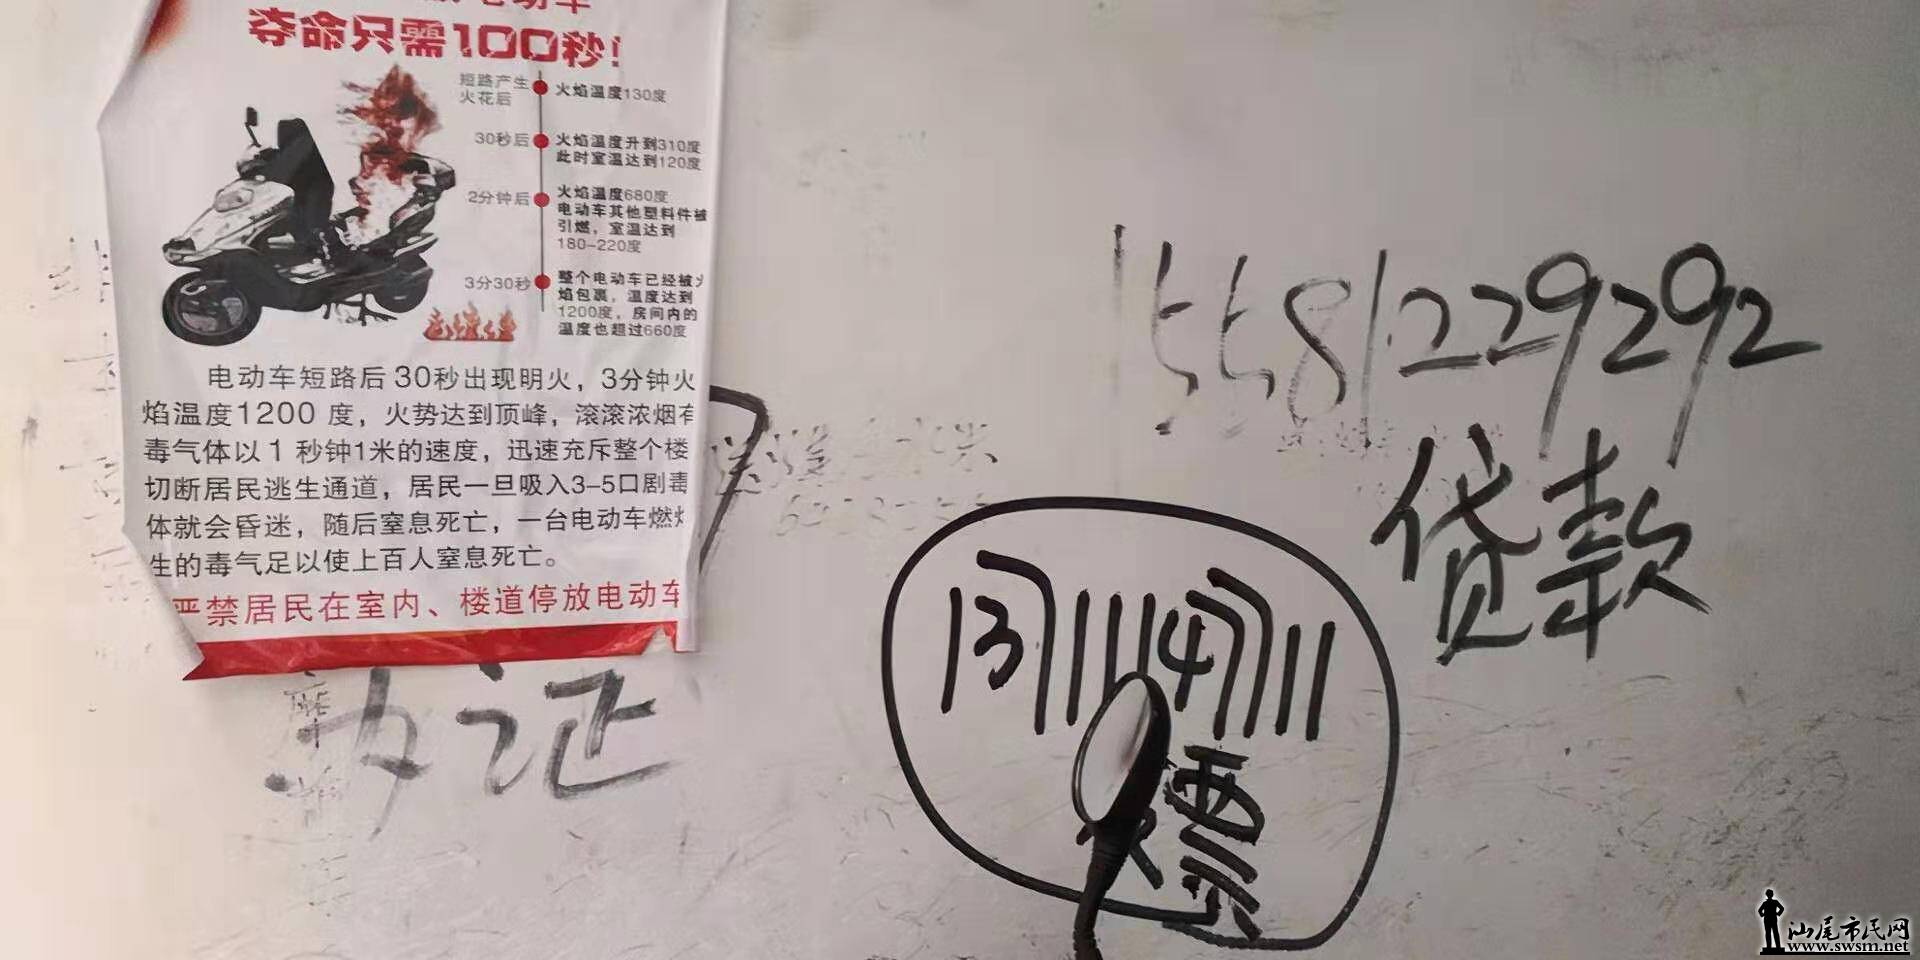 电动车
夺命只需100秒!
短路产生
火花后
火焰温度130度
30秒后
火焰温度升到310度
此时室温达到120度
2分钟后
火焰温度680度
电动车其他塑料件被
引燃，室温达到
180-220度
3分30秒
整个电动车已经被火
焰包裹，温度达到
1200度，房间内的
温度也超过660度
电动车短路后30秒出现明火，3分钟火
焰温度1200 度，火势达到顶峰，滚滚浓烟有
毒气体以1 秒钟1米的速度，迅速充斥整个楼
切断居民逃生通道，居民一旦吸入3-5口剧毒
体就会昏迷，随后窒息死亡，一台电动车燃烧
生的毒气足以使上百人窒息死亡。
严禁居民在室内、楼道停放电动车
办证
15581229292
贷款
票
汕尾市民网
www.swsm.net